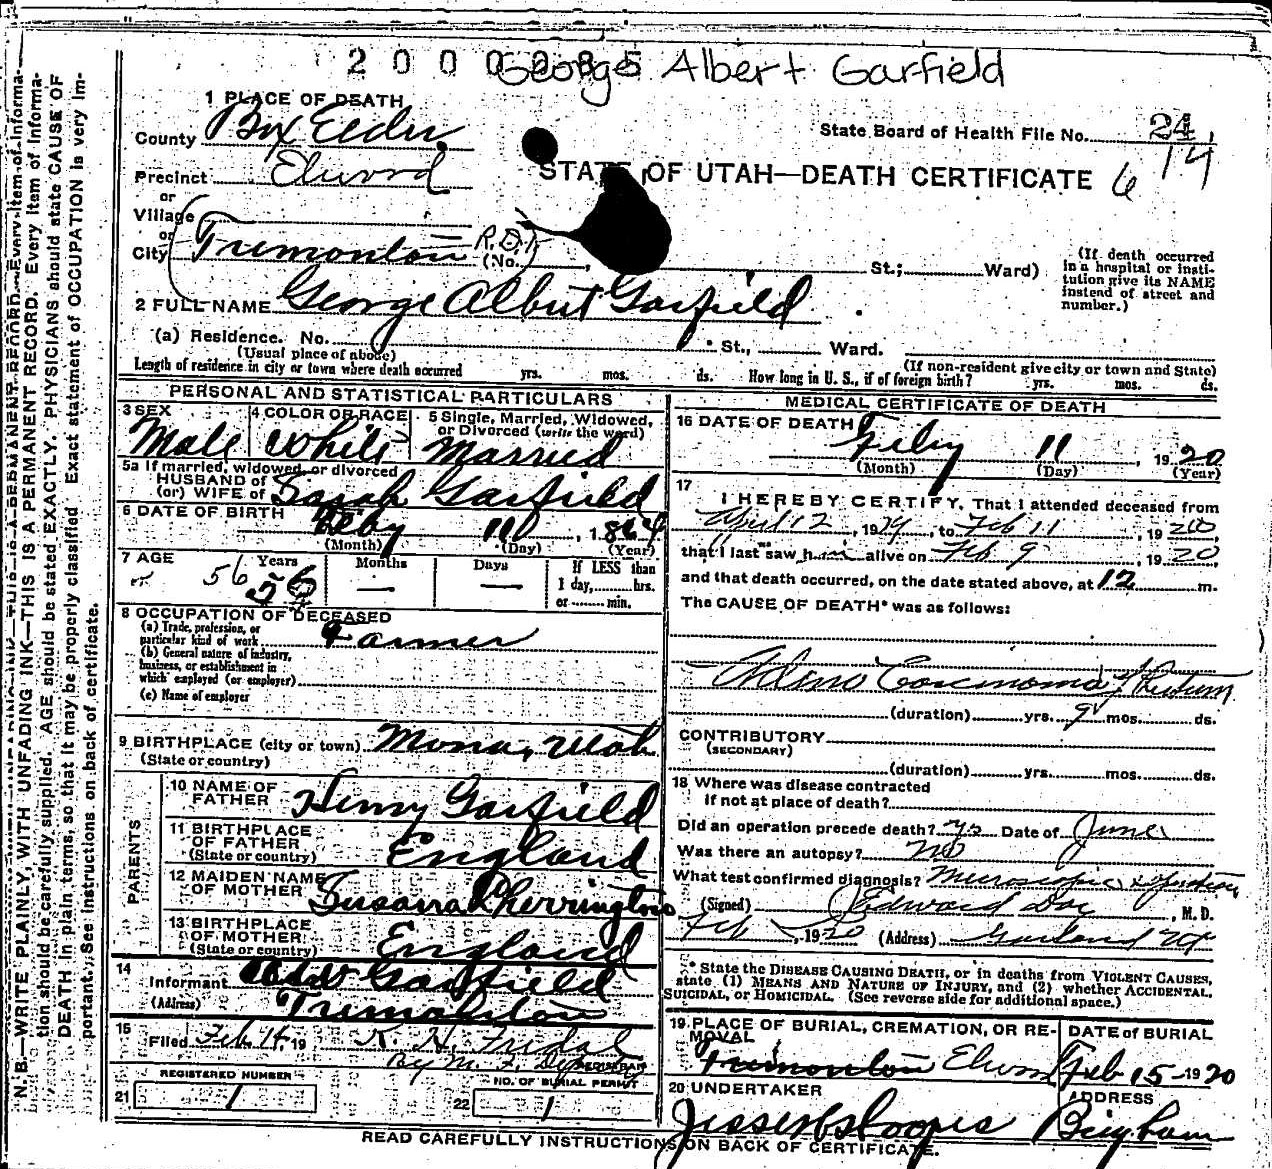 2000285
George Albert Garfield
1 PLACE OF DEATH
County Box Elder
State Board of Health File No. 24
14
Precinct Elwood
STATE OF UTAH—DEATH CERTIFICATE 6
or
Village
or
City Tremonton (No. R.D.1 St.; Ward)
(If death occurred in a hospital or institution give its NAME instead of street and number.)
2 FULL NAME George Albert Garfield
(a) Residence. No. St., Ward.
(Usual place of abode)
(If non-resident give city or town and State)
Length of residence in city or town where death occurred yrs. mos. ds. How long in U. S., if of foreign birth? yrs. mos. ds.
PERSONAL AND STATISTICAL PARTICULARS
3 SEX Male
4 COLOR OR RACE White
5 Single, Married, Widowed, or Divorced (write the word) Married
5a If married, widowed, or divorced
HUSBAND of
(or) WIFE of Sarah Garfield
6 DATE OF BIRTH Feby 11, 1864
(Month) (Day) (Year)
7 AGE or 56 Years 56 Months — Days — If LESS than 1 day, hrs. or min.
8 OCCUPATION OF DECEASED
(a) Trade, profession, or particular kind of work Farmer
(b) General nature of industry, business, or establishment in which employed (or employer)
(c) Name of employer
9 BIRTHPLACE (city or town) Mona, Utah
(State or country)
PARENTS
10 NAME OF FATHER Henry Garfield
11 BIRTHPLACE OF FATHER England
(State or country)
12 MAIDEN NAME OF MOTHER
13 BIRTHPLACE OF MOTHER England
(State or country)
14 Informant Garfield
(Address) Tremonton
15 Filed Feb 14, 19 K. H. Fridal
By M. F. Deputy REGISTRAR
REGISTERED NUMBER
21 1
NO. OF BURIAL PERMIT
22 1
MEDICAL CERTIFICATE OF DEATH
16 DATE OF DEATH Feby 11, 1920
(Month) (Day) (Year)
17 I HEREBY CERTIFY, That I attended deceased from
April 12, 1919, to Feb 11, 1920
that I last saw him alive on Feb 9, 1920
and that death occurred, on the date stated above, at 12 m.
The CAUSE OF DEATH* was as follows:
Adeno Carcinoma of Rectum
(duration) yrs. 9 mos. ds.
CONTRIBUTORY
(SECONDARY)
(duration) yrs. mos. ds.
18 Where was disease contracted
if not at place of death?
Did an operation precede death? Yes Date of June
Was there an autopsy? No
What test confirmed diagnosis? Microscopic &
(Signed) Edward, M. D.
Feb, 1920 (Address) Garland
* State the DISEASE CAUSING DEATH, or in deaths from VIOLENT CAUSES, state (1) MEANS AND NATURE OF INJURY, and (2) whether ACCIDENTAL, SUICIDAL, or HOMICIDAL. (See reverse side for additional space.)
19 PLACE OF BURIAL, CREMATION, OR REMOVAL Tremonton Elwood
DATE of BURIAL Feb 15-1920
20 UNDERTAKER
ADDRESS Brigham
READ CAREFULLY INSTRUCTIONS ON BACK OF CERTIFICATE.
N. B.—WRITE PLAINLY, WITH UNFADING INK—THIS IS A PERMANENT RECORD. Every item of information should be carefully supplied. AGE should be stated EXACTLY. PHYSICIANS should state CAUSE OF DEATH in plain terms, so that it may be properly classified. Exact statement of OCCUPATION is very important. See instructions on back of certificate.